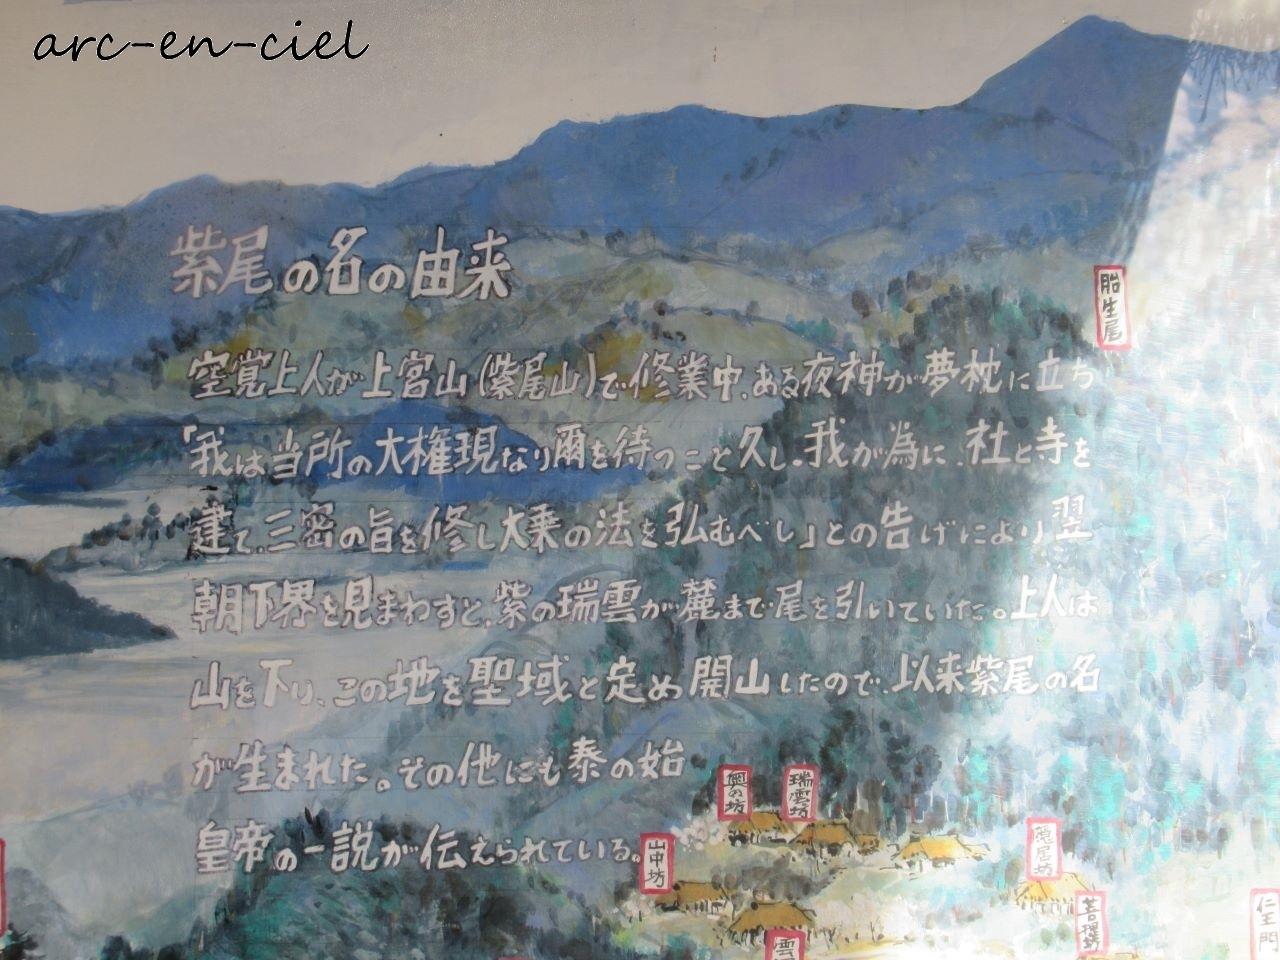 arc-en-ciel
紫尾の名の由来
空覚上人が上宮山(紫尾山)で修業中、ある夜神が夢枕に立ち
「我は当所の大権現なり爾を待つこと久し。我が為に、社と寺を
建て、三密の旨を修し大乗の法を弘むべし」との告げにより翌
朝下界を見まわすと、紫の瑞雲が麓まで尾を引いていた。上人は
山を下り、この地を聖域と定め開山したので、以来紫尾の名
が生まれた。その他にも泰の始
皇帝の一説が伝えられている。
胎生尾
奥の坊
瑞雲坊
山中坊
仁王門